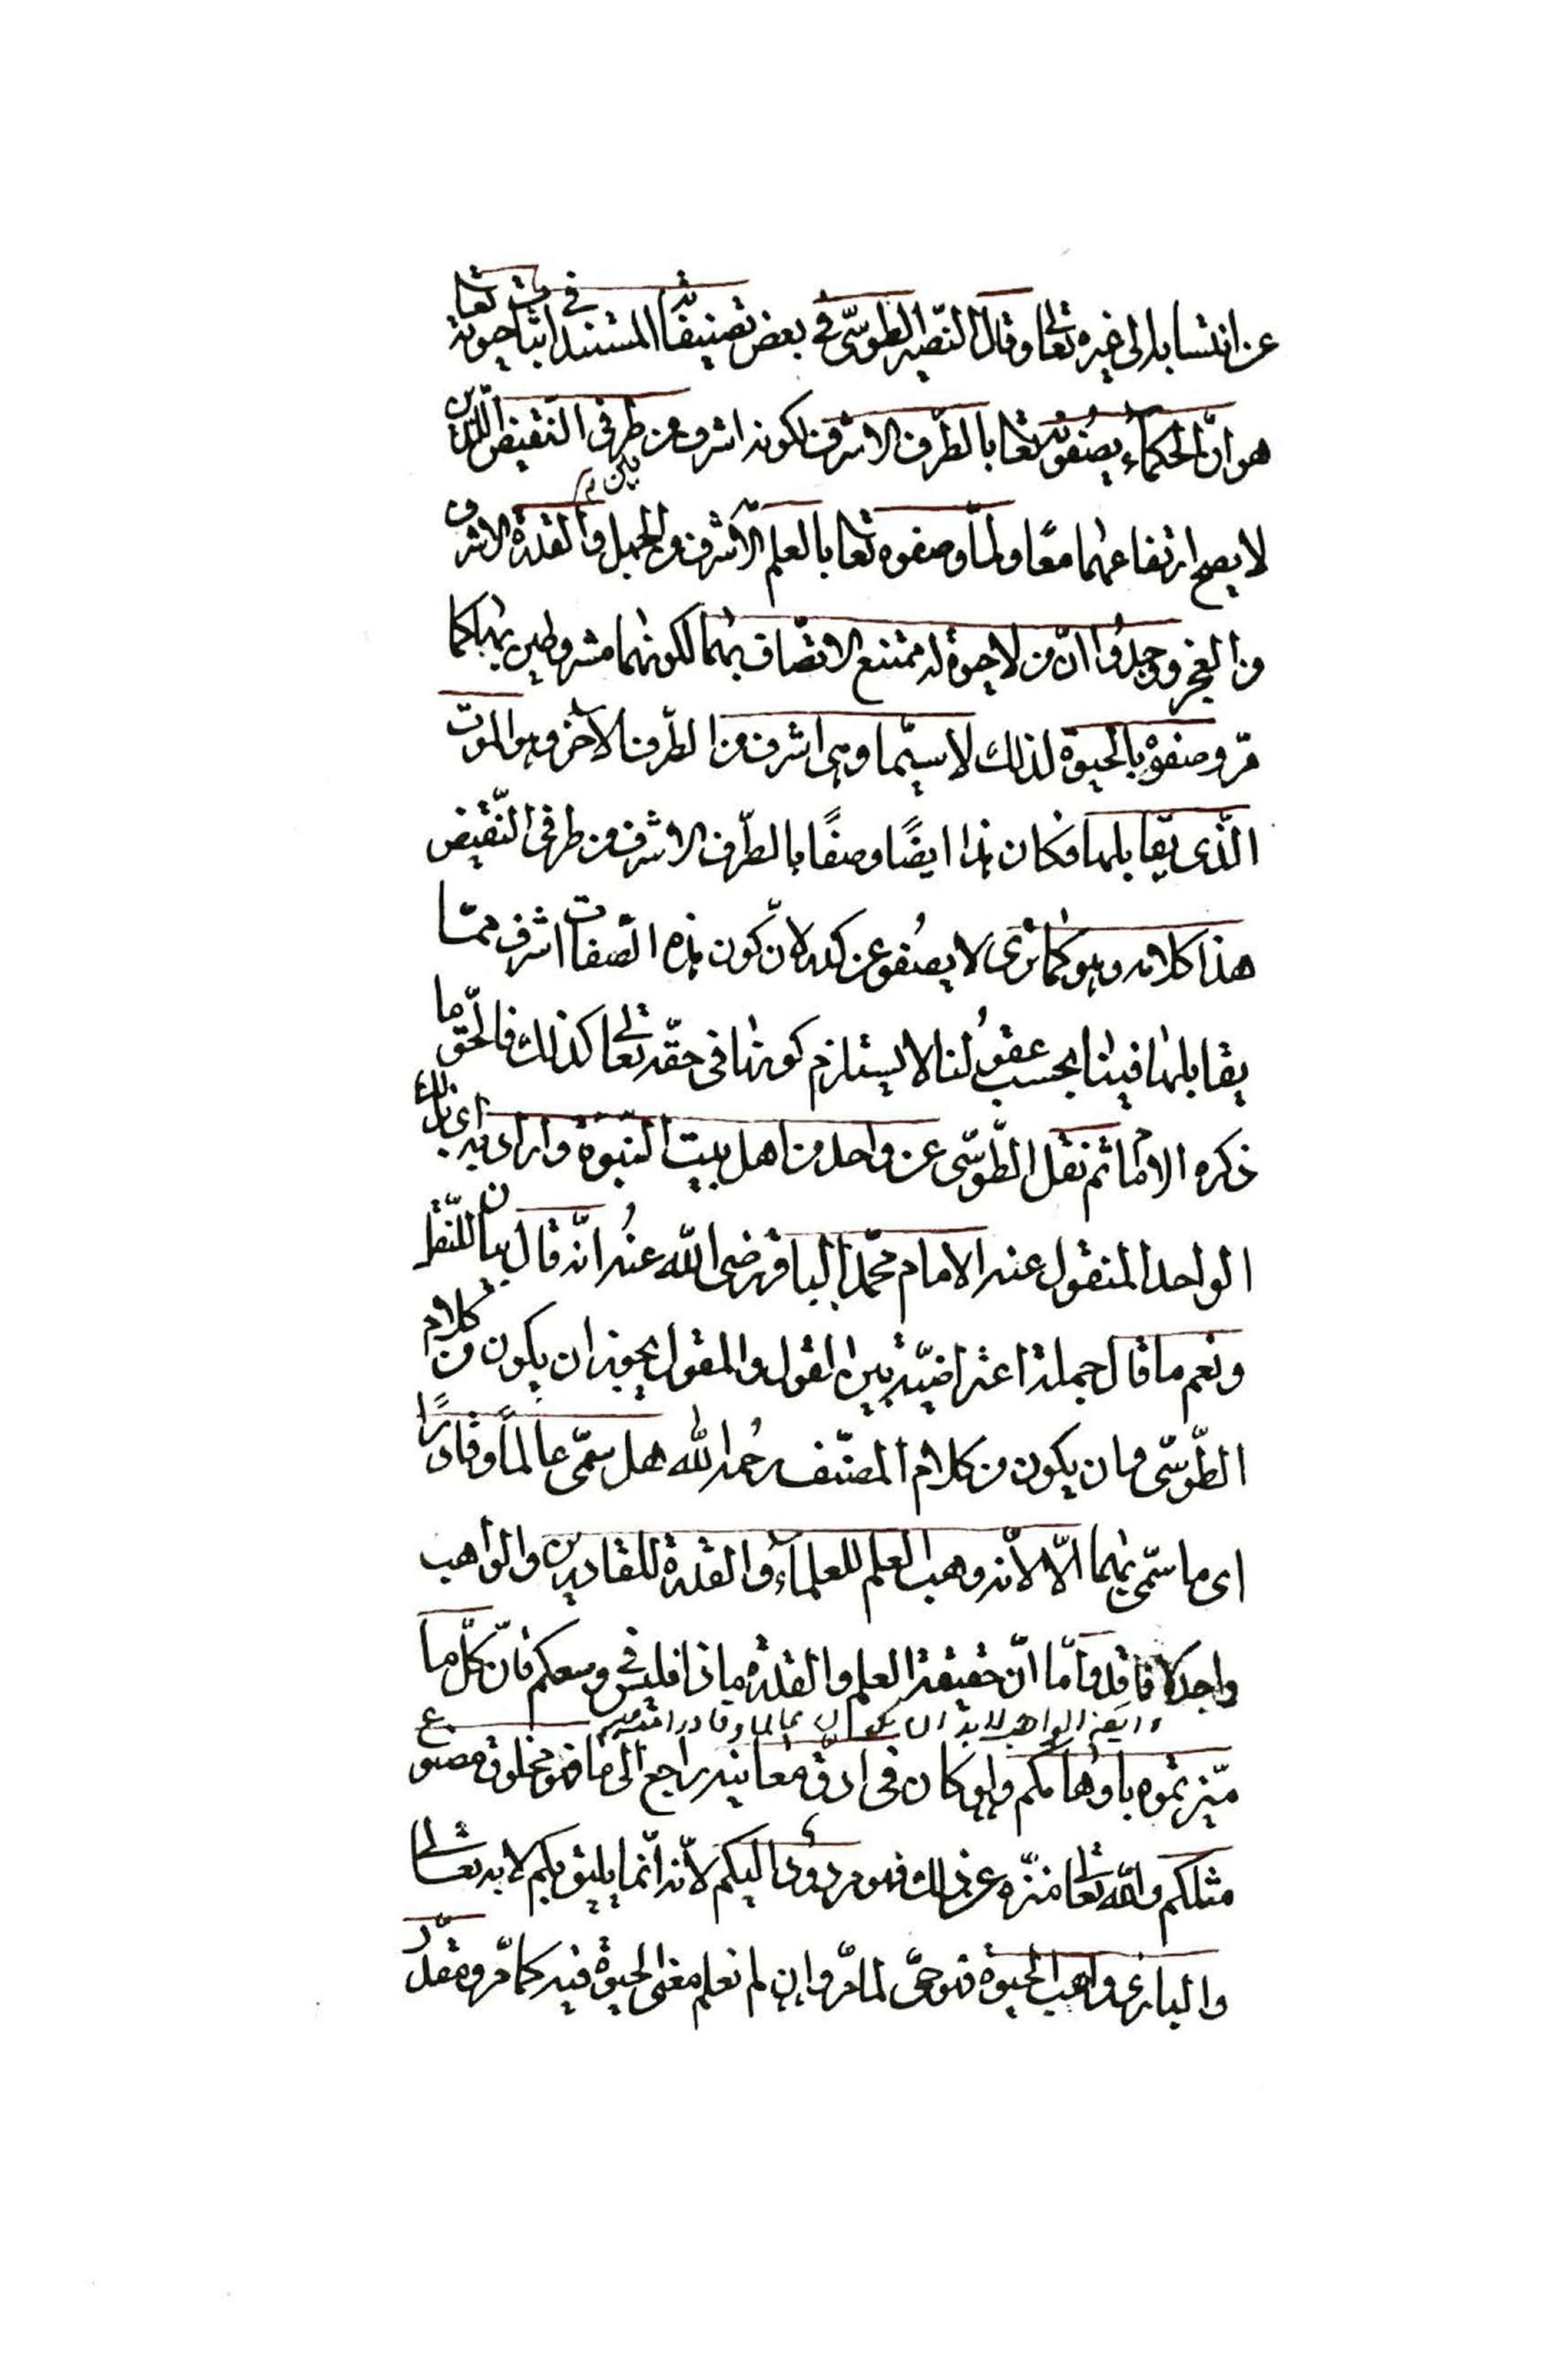 عن انتسابه الى غيره تعالى وقال النصير الطوسىّ فى بعض تصنيفاته المستند فى اثبات حيوته تعالى
هو انّ الحكماء يصفونه تعالى بالطّرف الاشرف لكونه اشرف من طرفى النّقيض اللّذين
لا يصح ارتفاعهما معًا ولمّا وصفوه تعالى بالعلم الاشرف من الجهل وبالقدرة الاشرف
من العجز وجدوا انّ من لا حيوة له ممتنع الاتّصاف بهما لكونهما مشروطين بها كما
مرّ وصفوه بالحيوة لذلك لا سيّما وهى اشرف من الطّرف الآخر وهو الموت
الّذى يقابلها فكان هذا ايضًا وصفًا بالطّرف الاشرف من طرفى النّقيض
هذا كلامه وهو كما ترى لا يصفو عن كدر لانّ كون هذه الصّفات اشرف ممّا
يقابلها فينا بحسب عقولنا لا يستلزم كونها فى حقّه تعالى كذلك فالحقّ ما
ذكره الامام ثم نقل الطّوسّى عن واحد من اهل بيت النّبوة واراد به اى بذلك
الواحد المنقول عنه الامام محمّد الباقر رضى اللّه عنه انّه قال بيان للنّقل
ونعم ما قال جملة اعتراضيّة بين القول والمقول يجوز ان يكون من كلام
الطّوسّى وان يكون من كلام المصنّف رحمه الله هل سمّى عالمًا وقادرًا
اى ما سمّى بهما الّا لانّه وهب العلم للعلماء والقدرة للقادرين والواهب
واجد لا فاقد وامّا انّ حقيقة العلم والقدرة ماذا فليس فى وسعكم فانّ كلّ ما
ميّزتموه باوهامكم ولو كان فى ادقّ معانيه راجع الى ما فهو مخلوق مصنوع
مثلكم واللّه تعالى منزّه عن ذلك فهو مردود اليكم لانّه انّما يليق بكم لا به تعالى
والبارى واهب الحيوة فهو حىّ لما مرّ وان لم نعلم معنى الحيوة فيه كما مرّ ومقدّر